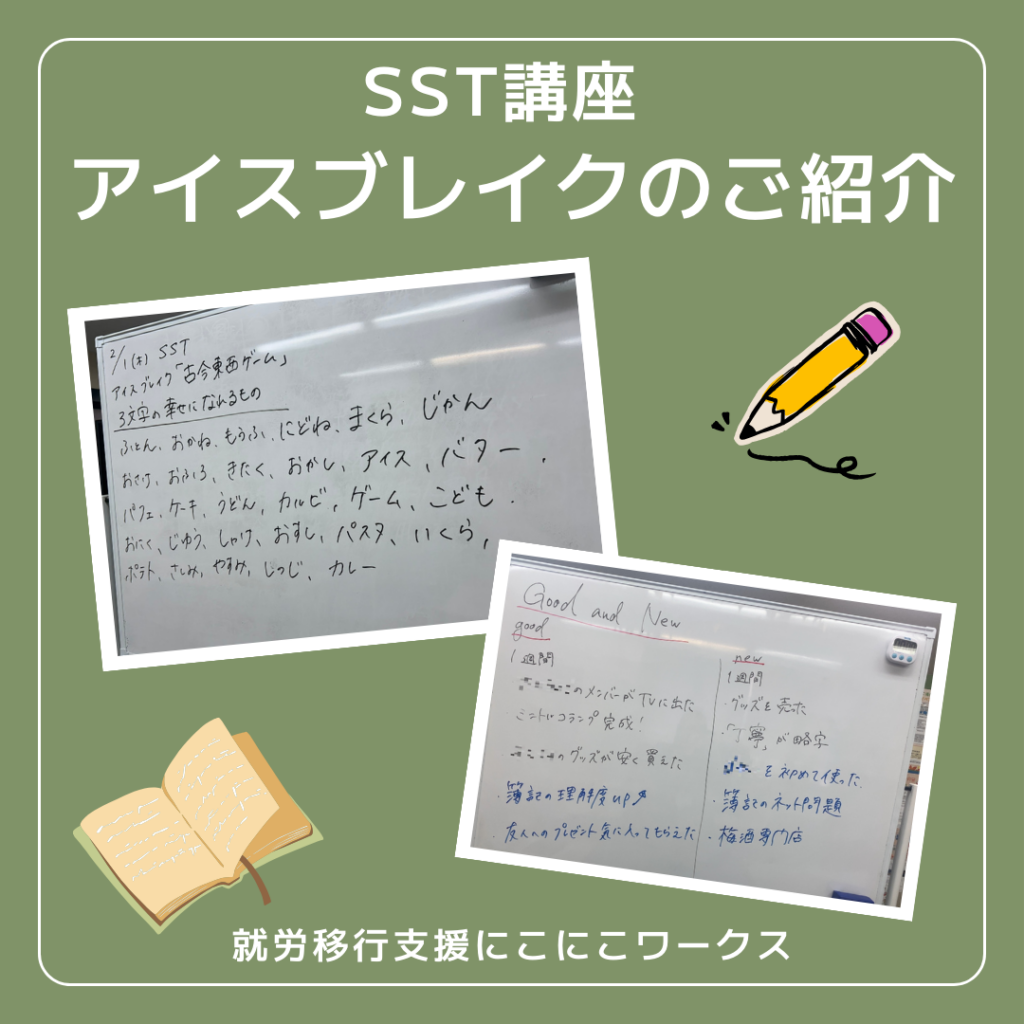 SST講座
アイスブレイクのご紹介
2/1(木) SST
アイスブレイク「古今東西ゲーム」
3文字の幸せになれるもの
ふとん、おかね、もうふ、にどね、まくら、じかん
おさけ、おふろ、きたく、おかし、アイス、バター.
パフェ、ケーキ、うどん、カルビ、ゲーム、こども.
おにく、じゆう、しゃけ、おすし、パスタ、いくら,
ポテト、さしみ、やすみ、ひつじ、カレー
Good and New
good
1週間
のメンバーがTVに出た
・ミニトレコランプ完成!
のグッズが安く買えた
・簿記の理解度up↗
・友人へのプレゼント気に入ってもらえた
new
1週間
・グッズを売った
・「丁寧」が略字
を初めて使った.
・簿記のネット問題
・梅酒専門店
就労移行支援にこにこワークス